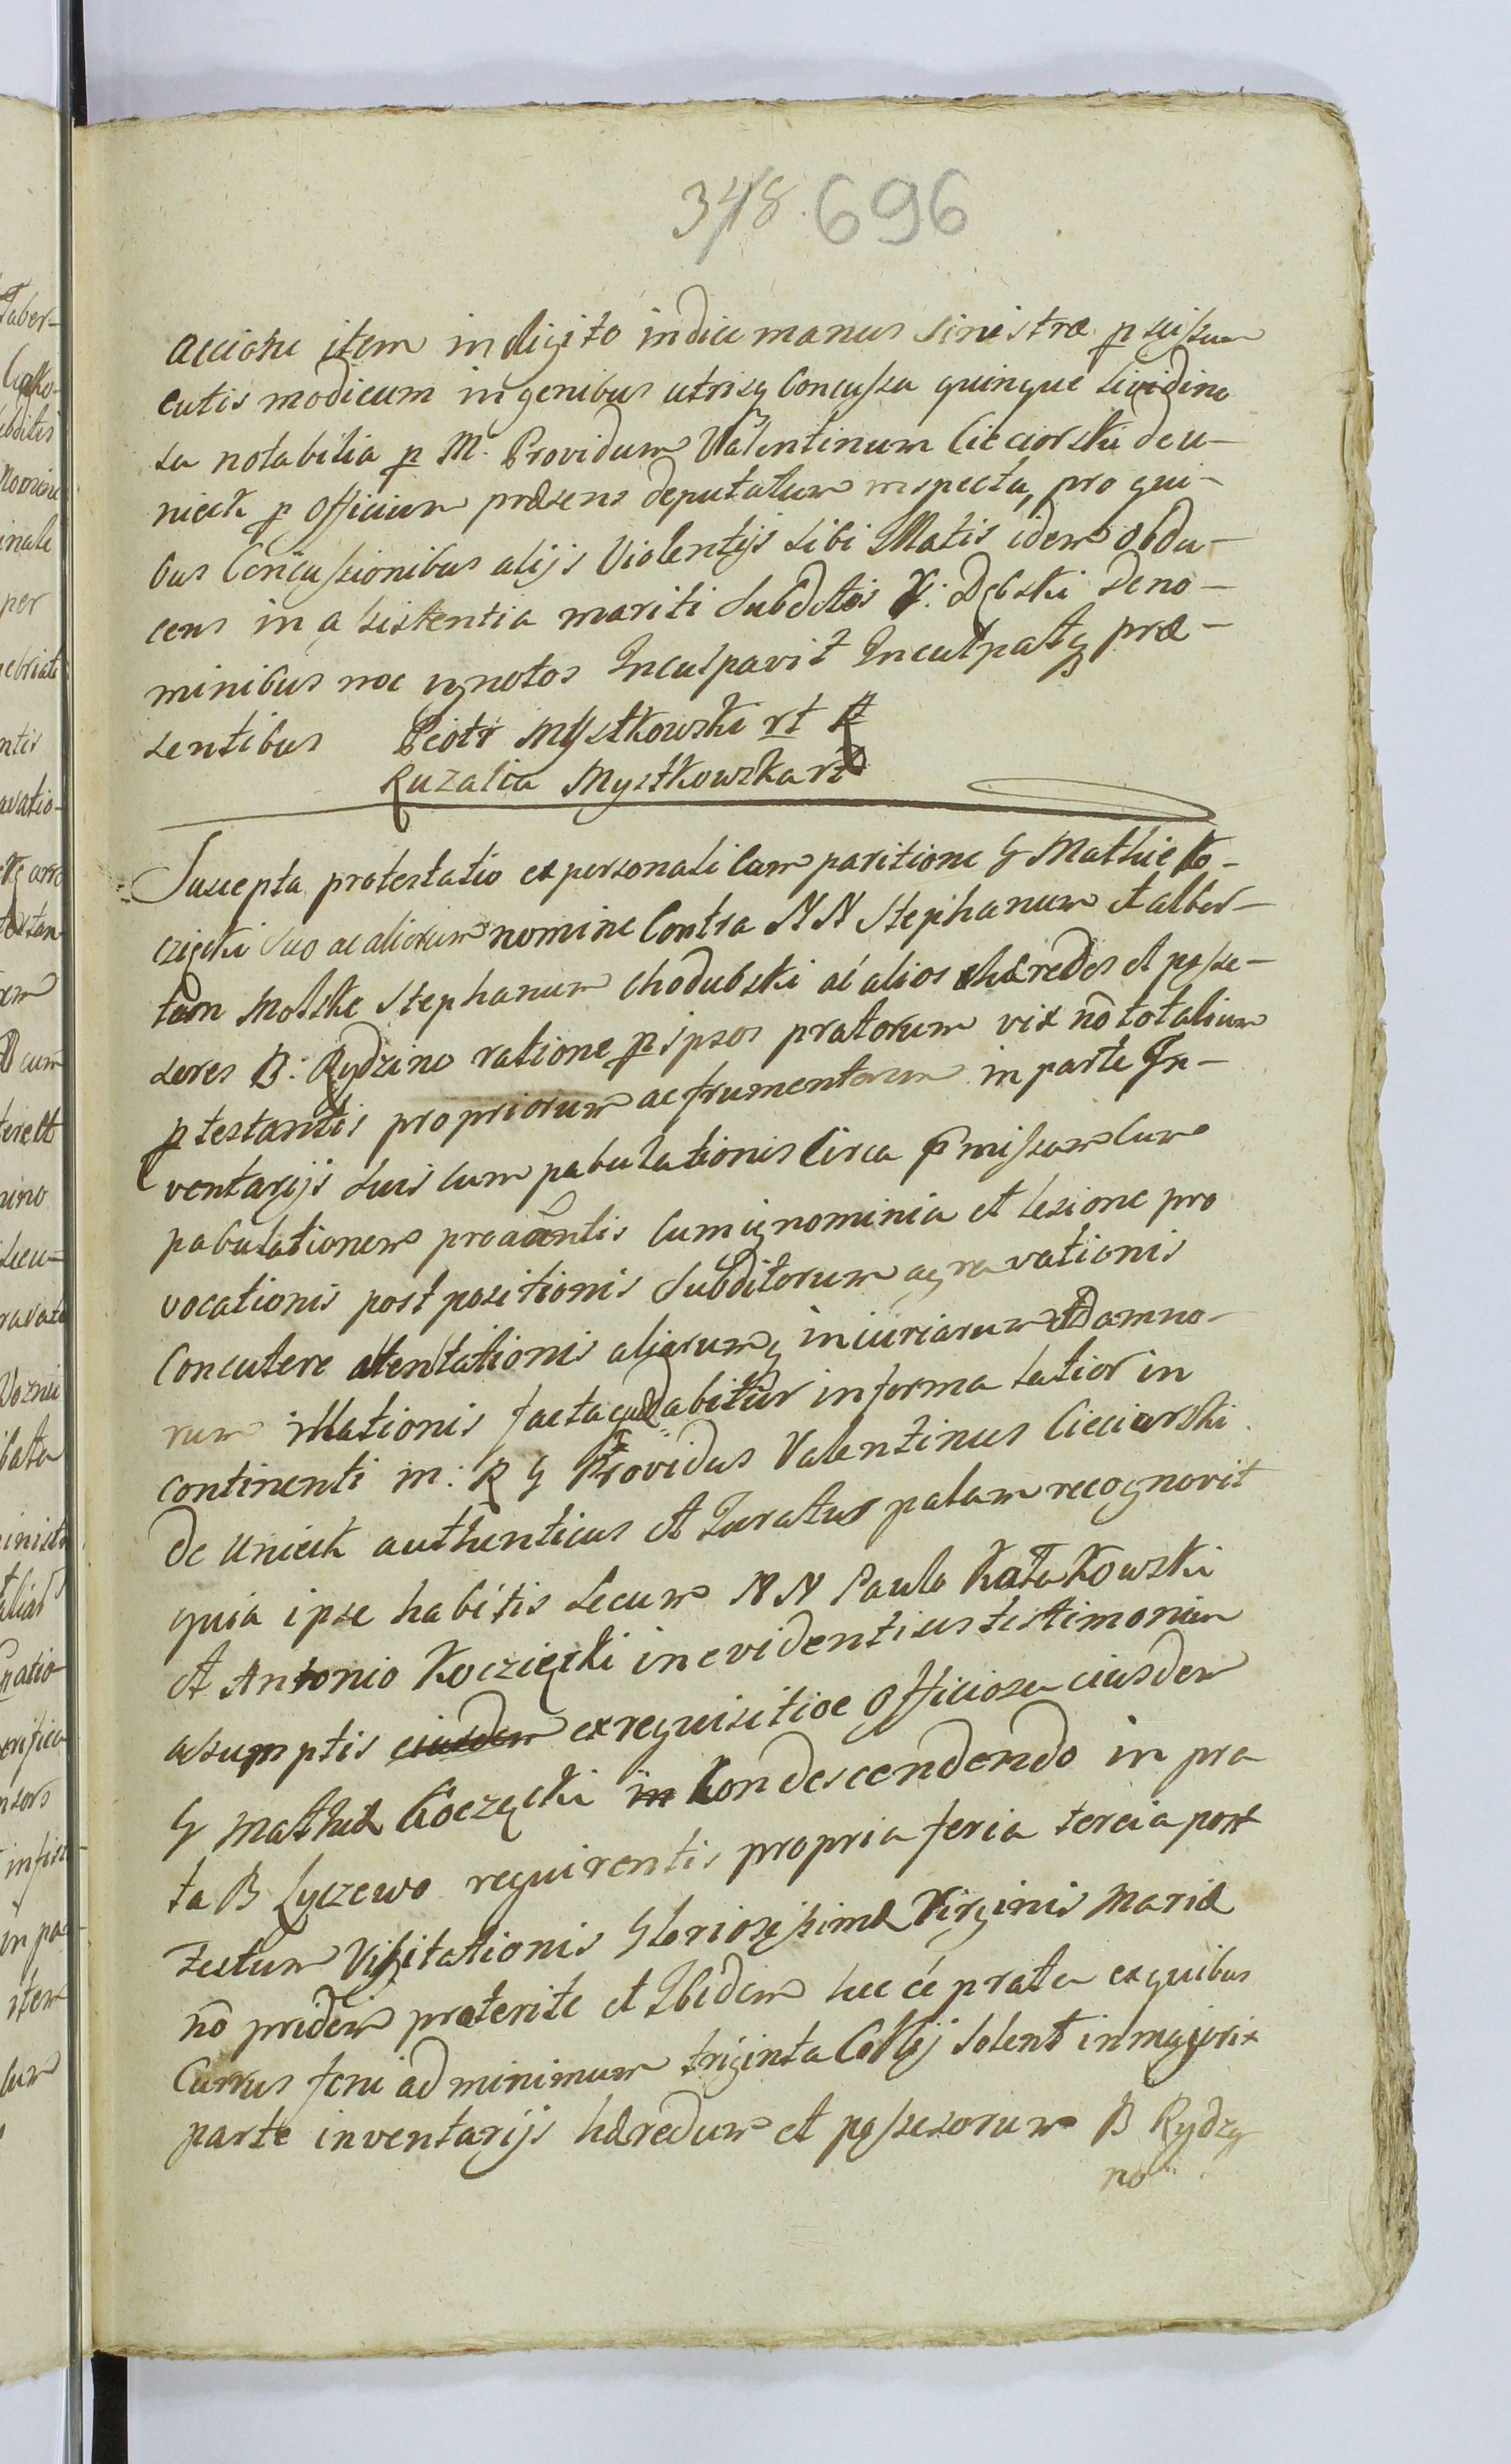 348. 696
item in digito indice manus sinistræ p scissum
cutis modicum in genibus utrisq Concussa quinque lividino
sa notabilia p M. Providum Valentinum Cieciorski de u-
nieck p Officium præsens deputatum inspecta, pro qui-
bus Concussionibus alijs Violentijs sibi Illatis idem obdu-
cens in asistentia mariti Subditos G: Dębski de no-
minibus noc ignotos Inculpavit Inculpatq præ-
sentibus Piotr Mystkowski rt
Ruzalia Mystkowska rt
Suscepta protestatio ex personali Comparitione G Mathie Ko-
czięcki suo ac aliorum nomine Contra NN Stephanum et alber-
tum Molskie Stephanum Chodubski ac alios hæredes et posse-
sores B: Rydzino ratione p ipsos pratorum vix nō totalium
ptestantis propriorum ac frumentorum in parte In-
ventarijs suis cum pabulationis Circa p̄missam Cum
pabulationem cum ignominia et lesione pro
vocationis post positionis Subditorum agravationis
Concutere attentationis aliarumq iniuriarum et damno-
rum illationis facta dabitur in forma latior in
continenti m: R G Providus Valentinus Cieciorski
de Unieck authenticus et Juratus palam recognovit
quia ipse habitis secum NN Paulo Kata Kowski
et Antonio Koczięcki in evidentius testimonium
asumptis eiusdem ex requisitioe Officiosa eiusdem
G Mathiæ Koczęcki in Condescendendo in pra
ta B Lyczewo requirentis propria feria tercia post
Festum Visitationis Gloriosissimæ Virginis Mariæ
nō pridem præterite et Ibidem hec cé prata ex quibus
Currus feni ad minimum triginta Collegi solent in majori
parte inventarijs hæredum et possesorum B Rydzy
no